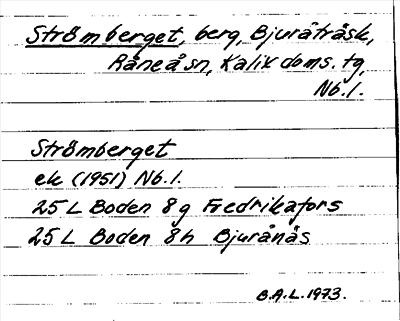 Strömberget, berg, Bjuråträsk,
Råneå sn, Kalix doms. tg,
Nb. l.
Strömberget
ek (1951) Nb. l.
25 L Boden 8 g Fredrikafors
25 L Boden 8 h Bjurånäs
B.A.L. 1973.